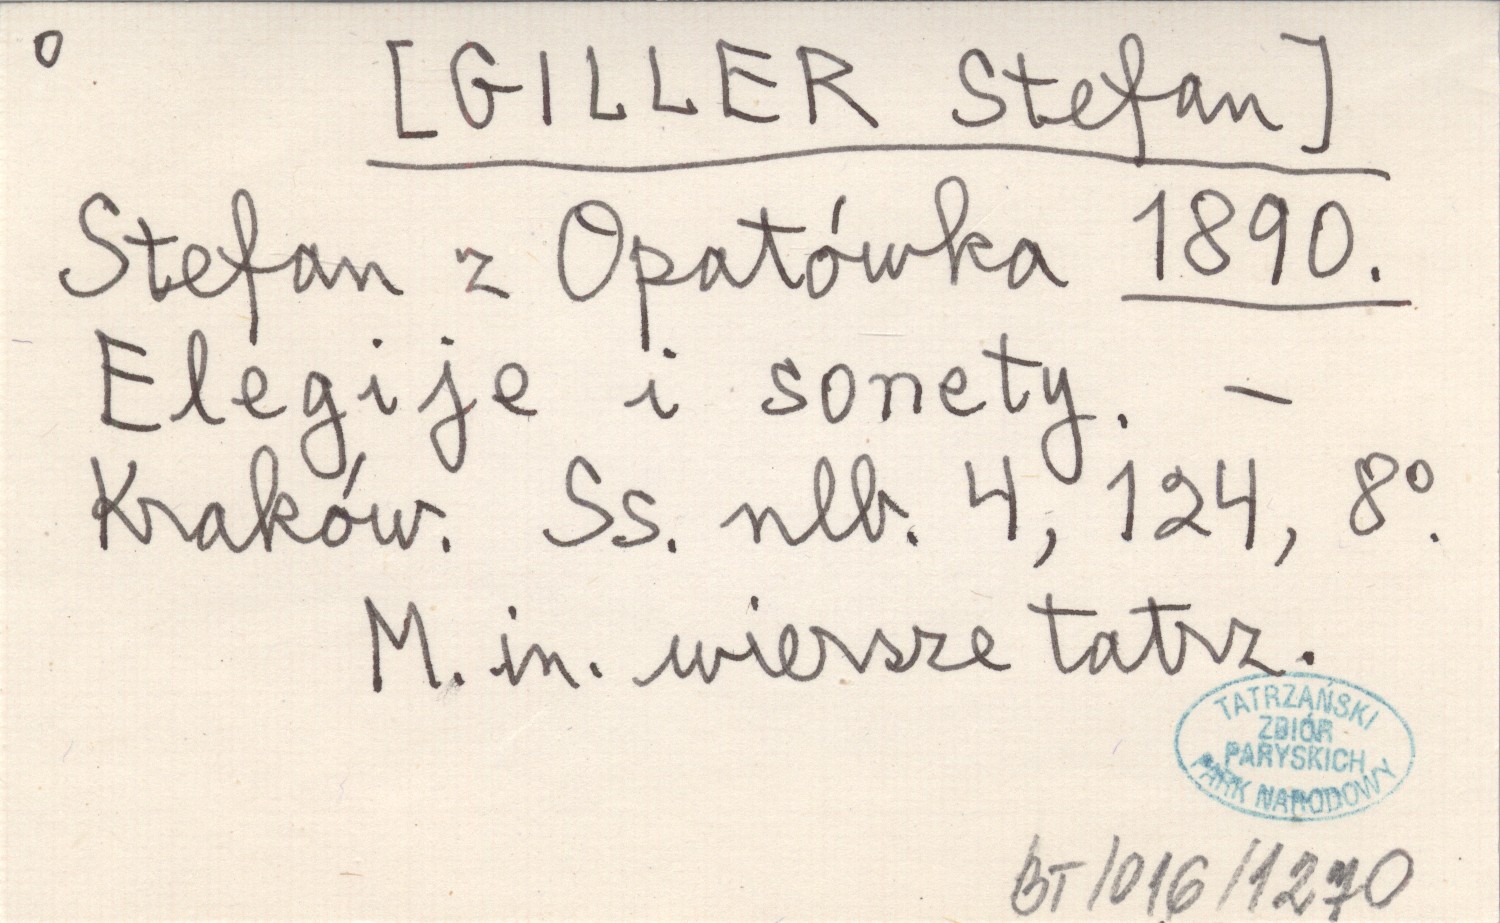 o
[GILLER Stefan]
Stefan z Opatówka 1890.
Elegije i sonety. –
Kraków. Ss. nlb. 4, 124, 8º.
M. in. wiersze tatrz.
TATRZAŃSKI
ZBIÓR
PARYSKICH
PARK NARODOWY
BT/016/1270